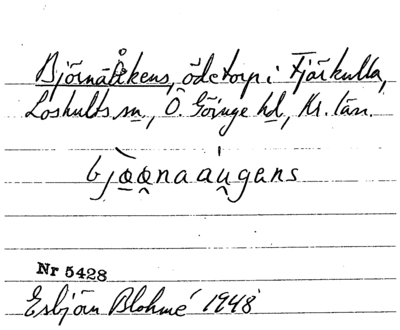 Björnaåkens, ödetorp i Fjärkulla,
Loshults sn, Ö. Göinge hd, Kr. län.
bjo̱o̭naau̯gens
Nr 5428
Esbjörn Blohmé 1948